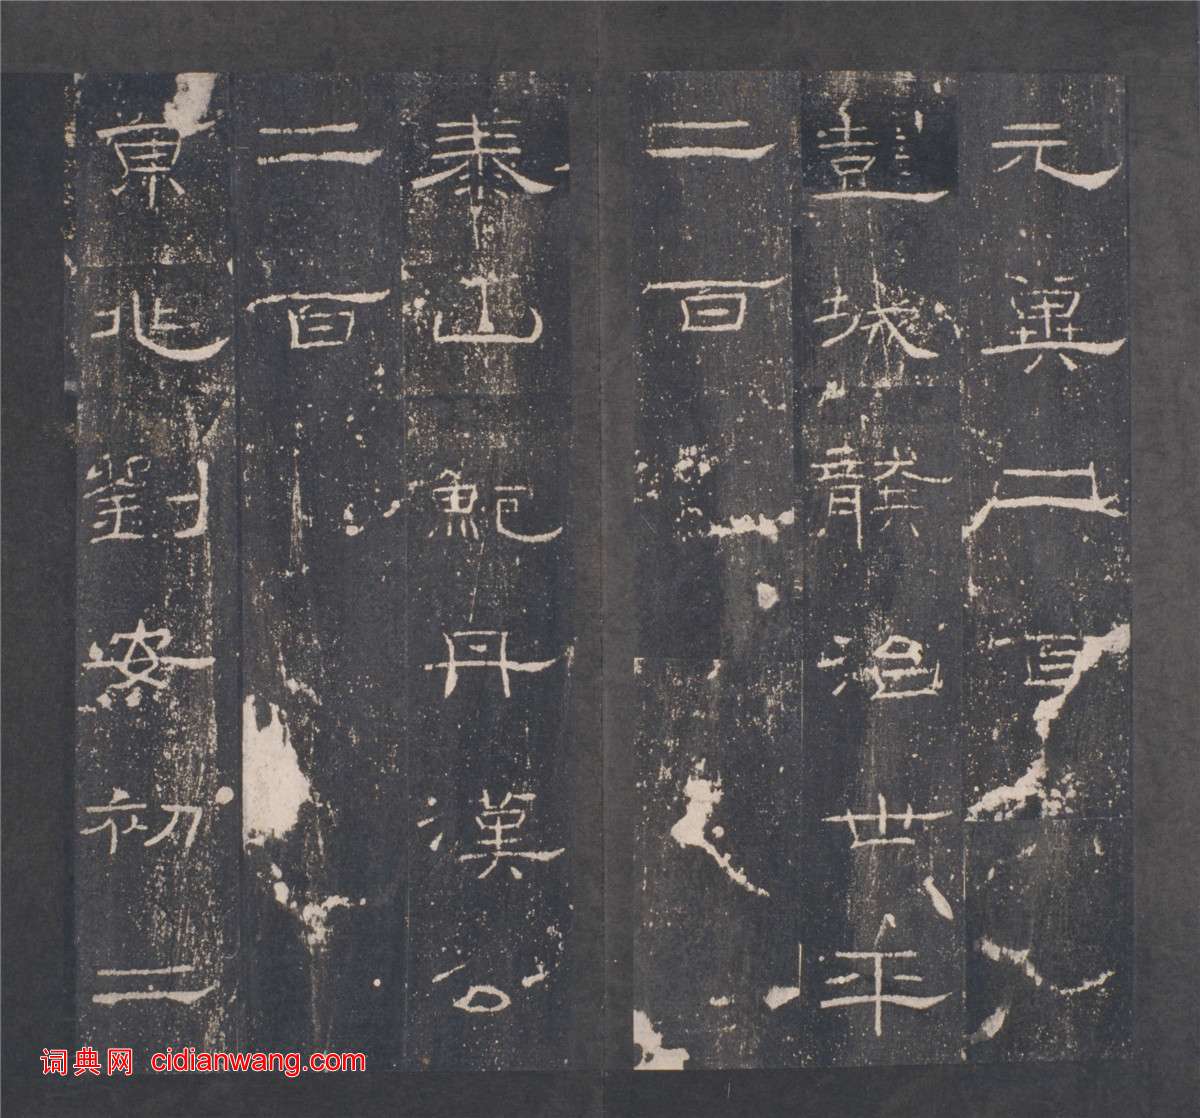 元異二百
彭城龔治世平
二百
泰山鮑丹漢公
二百
京兆劉安初二
词典网 cidianwang.com